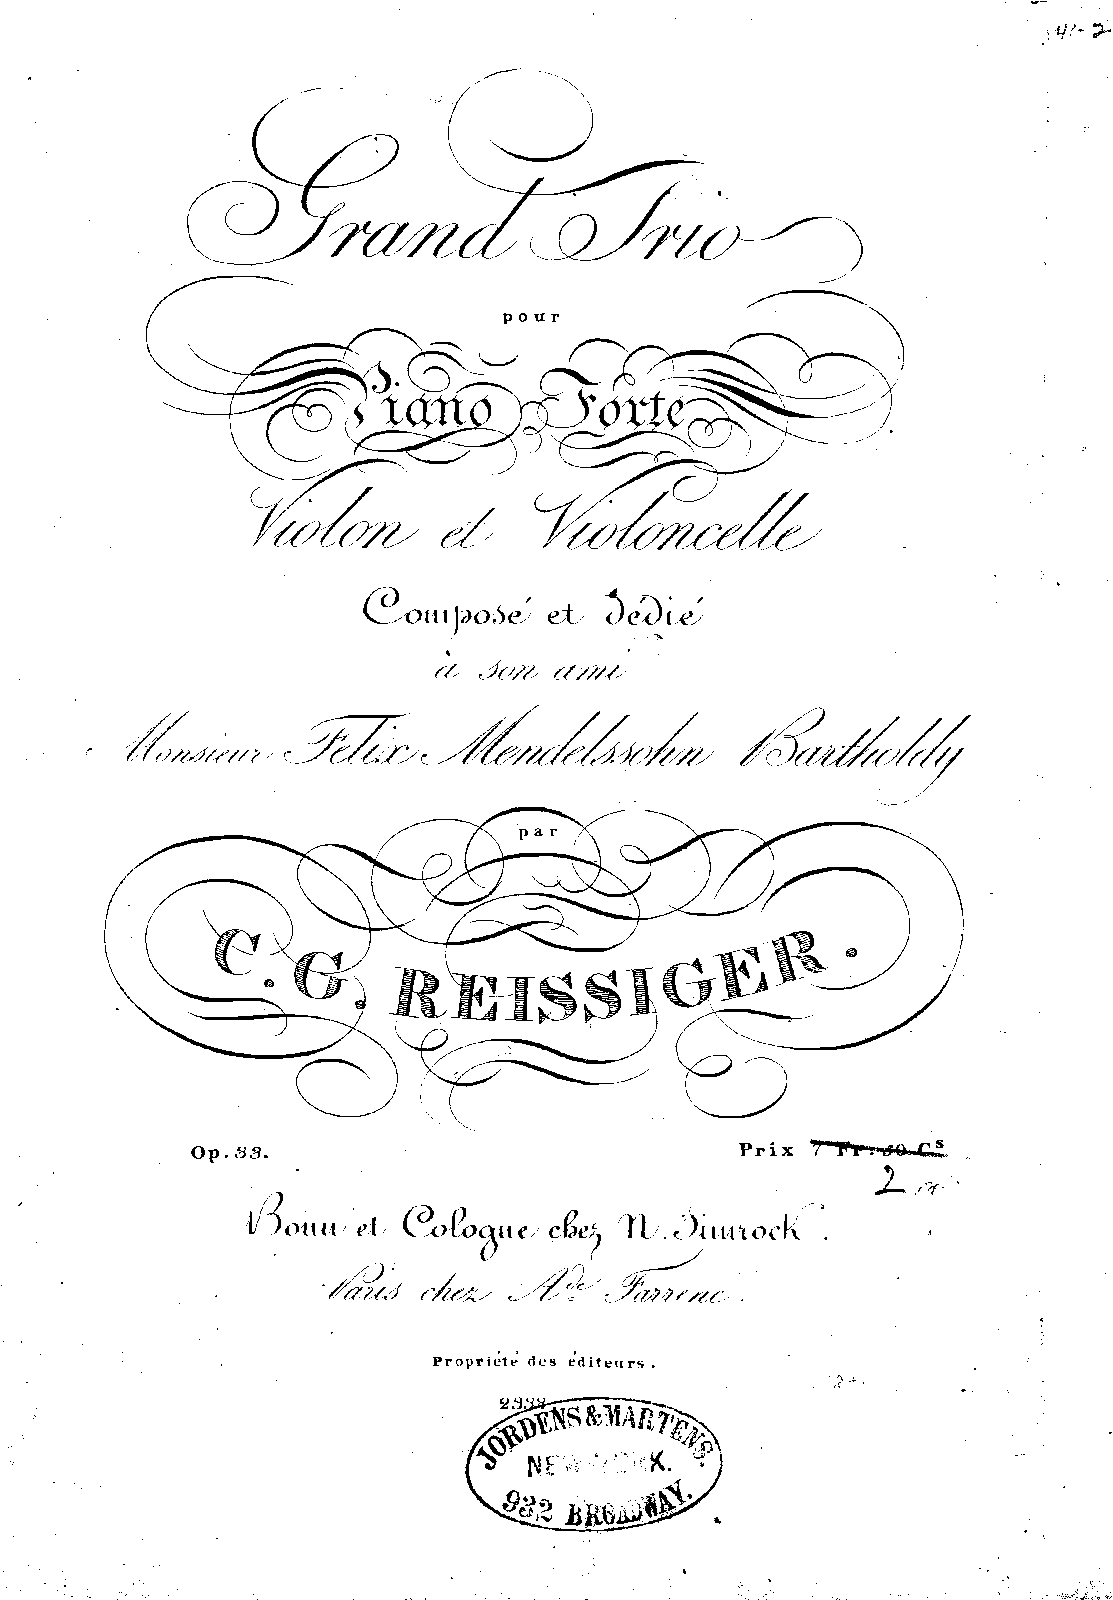 Grand Trio
pour
Piano Forte
Violon et Violoncelle
Composé et dédié
à son ami
Monsieur Felix Mendelssohn Bartholdy
par
C. G. REISSIGER.
Op. 33.
Prix 7 Fr. 50 Cs
2
Bonn et Cologne chez N. Simrock.
Paris chez Ade Farrenc.
Propriété des éditeurs.
JORDENS & MARTENS.
NEW YORK.
932 BROADWAY.